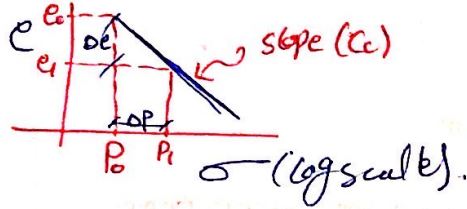 e₀
e
Δe
slope (Cc)
e₁
ΔP
P₀ P₁
σ (log scale).